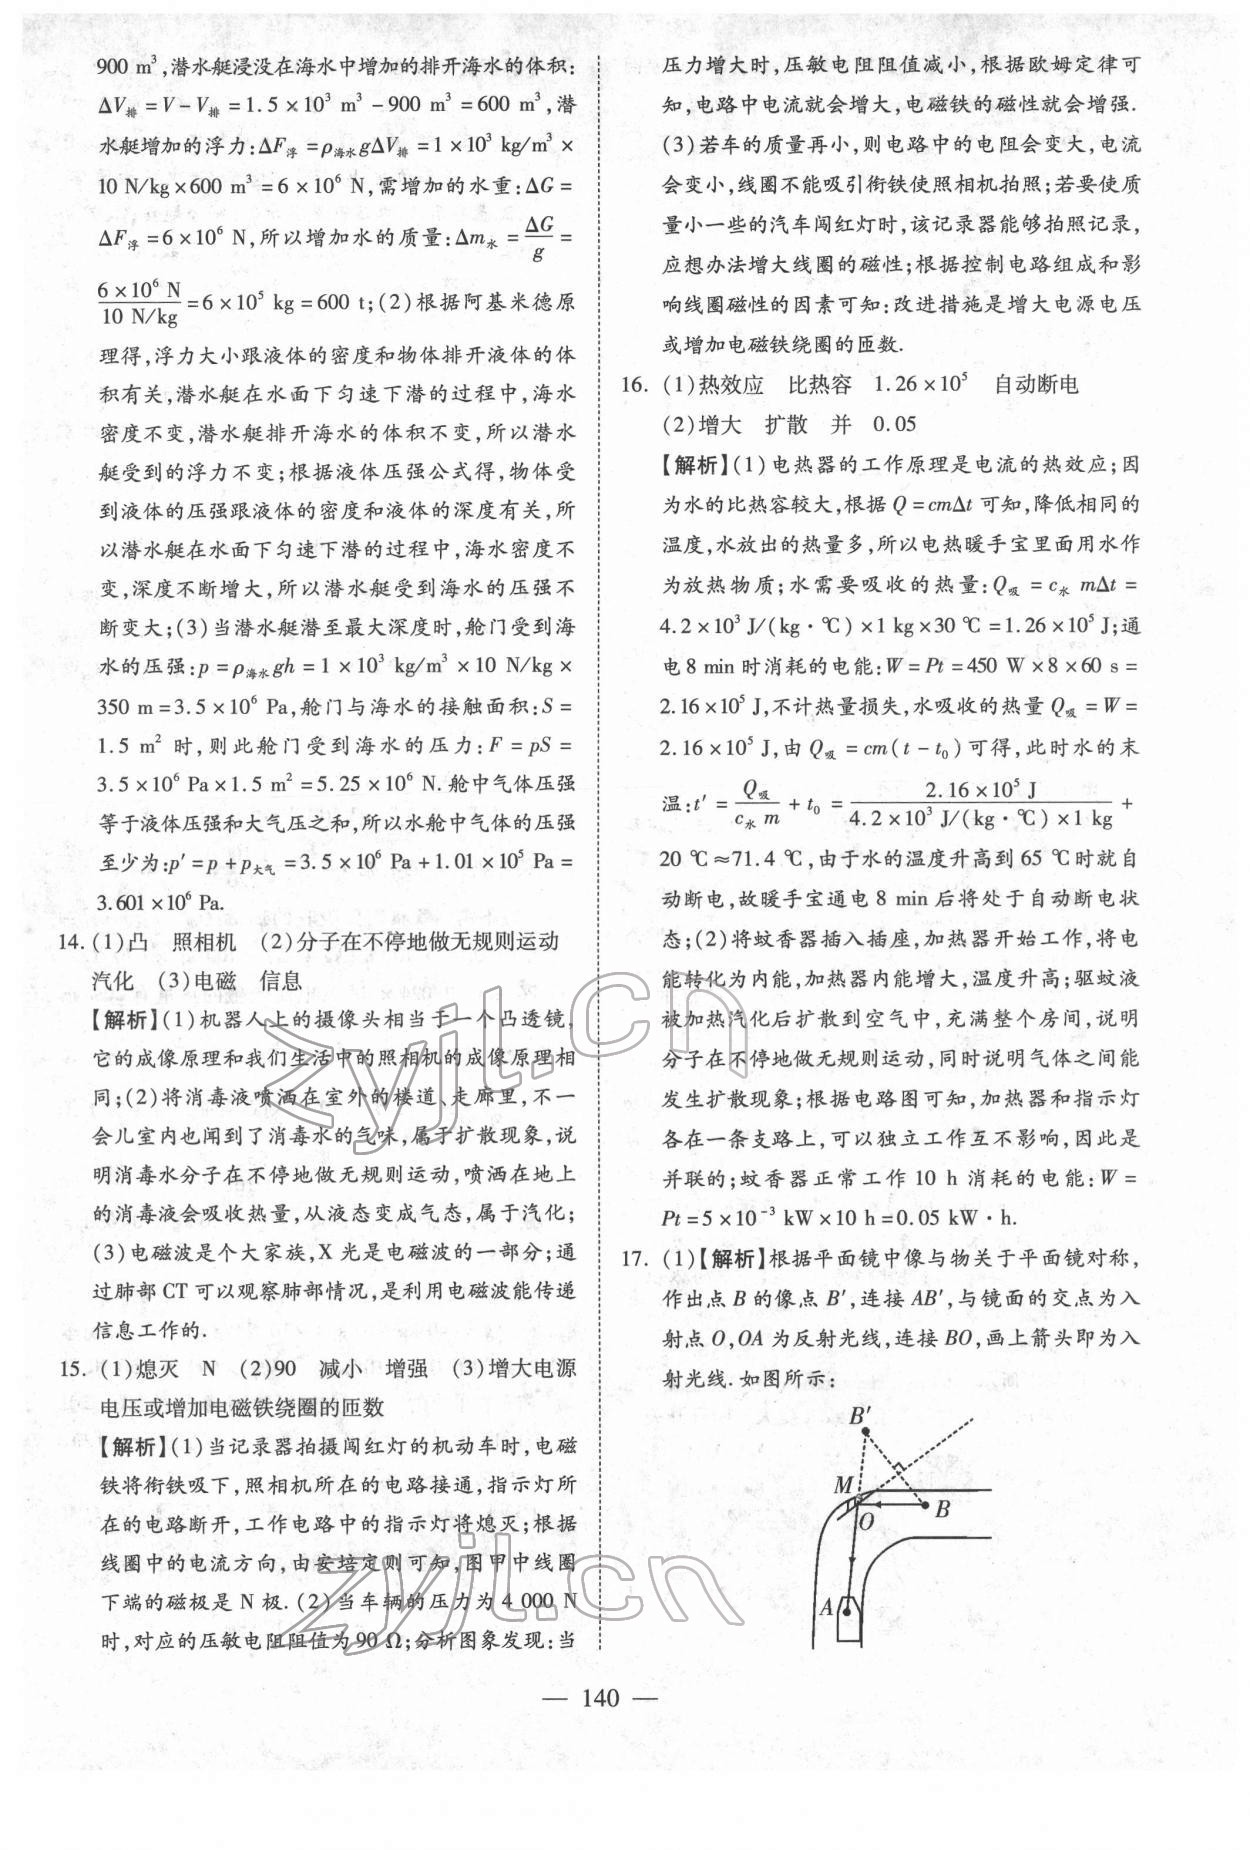 900 m³,潜水艇浸没在海水中增加的排开海水的体积:
ΔV排=V-V排=1.5×10³ m³-900 m³=600 m³,潜
水艇增加的浮力:ΔF浮=ρ海水gΔV排=1×10³ kg/m³×
10 N/kg×600 m³=6×10⁶ N,需增加的水重:ΔG=
ΔF浮=6×10⁶ N,所以增加水的质量:Δm水=ΔG/g=
6×10⁶ N/10 N/kg=6×10⁵ kg=600 t;(2)根据阿基米德原
理得,浮力大小跟液体的密度和物体排开液体的体
积有关,潜水艇在水面下匀速下潜的过程中,海水
密度不变,潜水艇排开海水的体积不变,所以潜水
艇受到的浮力不变;根据液体压强公式得,物体受
到液体的压强跟液体的密度和液体的深度有关,所
以潜水艇在水面下匀速下潜的过程中,海水密度不
变,深度不断增大,所以潜水艇受到海水的压强不
断变大;(3)当潜水艇潜至最大深度时,舱门受到海
水的压强:p=ρ海水gh=1×10³ kg/m³×10 N/kg×
350 m=3.5×10⁶ Pa,舱门与海水的接触面积:S=
1.5 m²时,则此舱门受到海水的压力:F=pS=
3.5×10⁶ Pa×1.5 m²=5.25×10⁶ N.舱中气体压强
等于液体压强和大气压之和,所以水舱中气体的压强
至少为:p′=p+p大气=3.5×10⁶ Pa+1.01×10⁵ Pa=
3.601×10⁶ Pa.
14.(1)凸 照相机 (2)分子在不停地做无规则运动
汽化 (3)电磁 信息
【解析】(1)机器人上的摄像头相当于一个凸透镜,
它的成像原理和我们生活中的照相机的成像原理相
同;(2)将消毒液喷洒在室外的楼道、走廊里,不一
会儿室内也闻到了消毒水的气味,属于扩散现象,说
明消毒水分子在不停地做无规则运动,喷洒在地上
的消毒液会吸收热量,从液态变成气态,属于汽化;
(3)电磁波是个大家族,X光是电磁波的一部分;通
过肺部CT可以观察肺部情况,是利用电磁波能传递
信息工作的.
15.(1)熄灭 N (2)90 减小 增强 (3)增大电源
电压或增加电磁铁绕圈的匝数
【解析】(1)当记录器拍摄闯红灯的机动车时,电磁
铁将衔铁吸下,照相机所在的电路接通,指示灯所
在的电路断开,工作电路中的指示灯将熄灭;根据
线圈中的电流方向,由安培定则可知,图甲中线圈
下端的磁极是N极.(2)当车辆的压力为4 000 N
时,对应的压敏电阻阻值为90 Ω;分析图象发现:当
压力增大时,压敏电阻阻值减小,根据欧姆定律可
知,电路中电流就会增大,电磁铁的磁性就会增强.
(3)若车的质量再小,则电路中的电阻会变大,电流
会变小,线圈不能吸引衔铁使照相机拍照;若要使质
量小一些的汽车闯红灯时,该记录器能够拍照记录,
应想办法增大线圈的磁性;根据控制电路组成和影
响线圈磁性的因素可知:改进措施是增大电源电压
或增加电磁铁绕圈的匝数.
16.(1)热效应 比热容 1.26×10⁵ 自动断电
(2)增大 扩散 并 0.05
【解析】(1)电热器的工作原理是电流的热效应;因
为水的比热容较大,根据Q=cmΔt可知,降低相同的
温度,水放出的热量多,所以电热暖手宝里面用水作
为放热物质;水需要吸收的热量:Q吸=c水mΔt=
4.2×10³ J/(kg·℃)×1 kg×30 ℃=1.26×10⁵ J;通
电8 min时消耗的电能:W=Pt=450 W×8×60 s=
2.16×10⁵ J,不计热量损失,水吸收的热量Q吸=W=
2.16×10⁵ J,由Q吸=cm(t-t₀)可得,此时水的末
温:t′=Q吸/c水m+t₀=2.16×10⁵ J/4.2×10³ J/(kg·℃)×1 kg+
20 ℃≈71.4 ℃,由于水的温度升高到65 ℃时就自
动断电,故暖手宝通电8 min后将处于自动断电状
态;(2)将蚊香器插入插座,加热器开始工作,将电
能转化为内能,加热器内能增大,温度升高;驱蚊液
被加热汽化后扩散到空气中,充满整个房间,说明
分子在不停地做无规则运动,同时说明气体之间能
发生扩散现象;根据电路图可知,加热器和指示灯
各在一条支路上,可以独立工作互不影响,因此是
并联的;蚊香器正常工作10 h消耗的电能:W=
Pt=5×10⁻³ kW×10 h=0.05 kW·h.
17.(1)【解析】根据平面镜中像与物关于平面镜对称,
作出点B的像点B′,连接AB′,与镜面的交点为入
射点O,OA为反射光线,连接BO,画上箭头即为入
射光线.如图所示:
B′
M
O
B
A
— 140 —
zyjl.cn
zyjl.cn